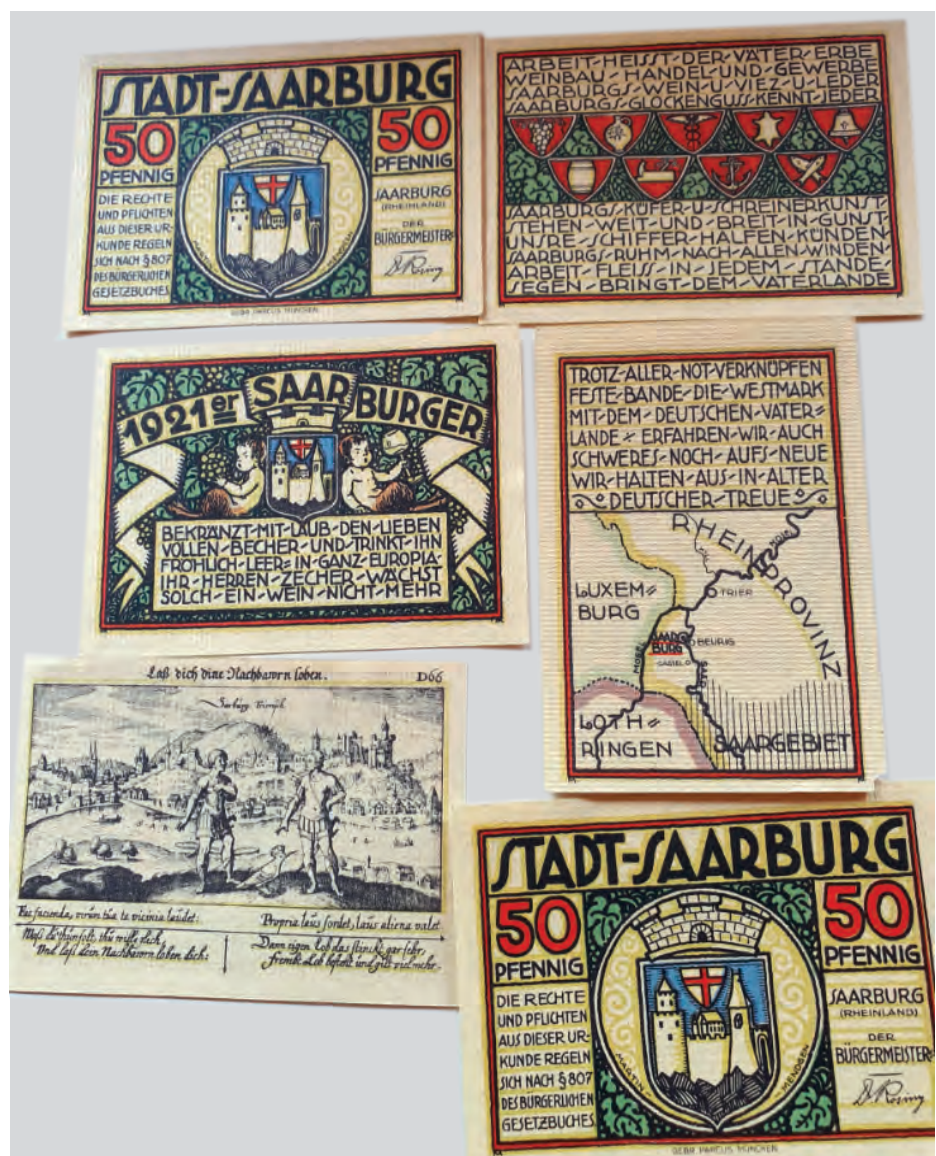 STADT-SAARBURG
50
PFENNIG
DIE RECHTE
UND PFLICHTEN
AUS DIESER UR-
KUNDE REGELN
SICH NACH § 807
DES BÜRGERLICHEN
GESETZBUCHES
MARTIN - MENDGEN
50
PFENNIG
SAARBURG
(RHEINLAND)
DER
BÜRGERMEISTER:
GEBR. PARCUS MÜNCHEN
ARBEIT-HEISST-DER-VÄTER-ERBE
WEINBAU-HANDEL-UND-GEWERBE
SAARBURGS-WEIN-U-VIEZ-U-LEDER
SAARBURGS-GLOCKENGUSS-KENNT-JEDER
SAARBURGS-KÜFER-U-SCHREINERKUNST
STEHEN-WEIT-UND-BREIT-IN-GUNST-
UNSRE-SCHIFFER-HALFEN-KÜNDEN-
SAARBURGS-RUHM-NACH-ALLEN-WINDEN-
ARBEIT-FLEISS-IN-JEDEM-STANDE-
SEGEN-BRINGT-DEM-VATERLANDE
1921er SAARBURGER
BEKRÄNZT-MIT-LAUB-DEN-LIEBEN
VOLLEN-BECHER-UND-TRINKT-IHN
FRÖHLICH-LEER=IN-GANZ-EUROPIA-
IHR-HERREN-ZECHER-WÄCHST
SOLCH-EIN-WEIN-NICHT-MEHR
TROTZ-ALLER-NOT-VERKNÜPFEN
FESTE-BANDE-DIE-WESTMARK
MIT-DEM-DEUTSCHEN-VATER=
LANDE * ERFAHREN-WIR-AUCH
SCHWERES-NOCH-AUFS-NEUE
WIR-HALTEN-AUS-IN-ALTER
DEUTSCHER-TREUE
RHEINPROVINZ
MOSEL
LUXEM=
BURG
TRIER
SAAR
BURG
BEURIG
CASTEL
MOSEL
SAAR
LOTH=
RINGEN
SAARGEBIET
Laß dich dine Nachbawrn loben.
D66
Sarburg Trium
Fac facienda, virum tua te vicinia laudet:
Propria laus sordet, laus aliena valet
Waß du thun solt, thu willigklich,
Und laß dein Nachbawrn loben dich:
Dann eigen Lob das stinckt gar sehr,
frembd Lob besteht und gilt viel mehr.
STADT-SAARBURG
50
PFENNIG
DIE RECHTE
UND PFLICHTEN
AUS DIESER UR-
KUNDE REGELN
SICH NACH § 807
DES BÜRGERLICHEN
GESETZBUCHES
MARTIN - MENDGEN
50
PFENNIG
SAARBURG
(RHEINLAND)
DER
BÜRGERMEISTER:
GEBR. PARCUS MÜNCHEN